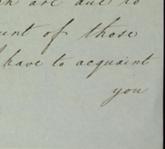 are due to
unt of those
I have to acquaint
you